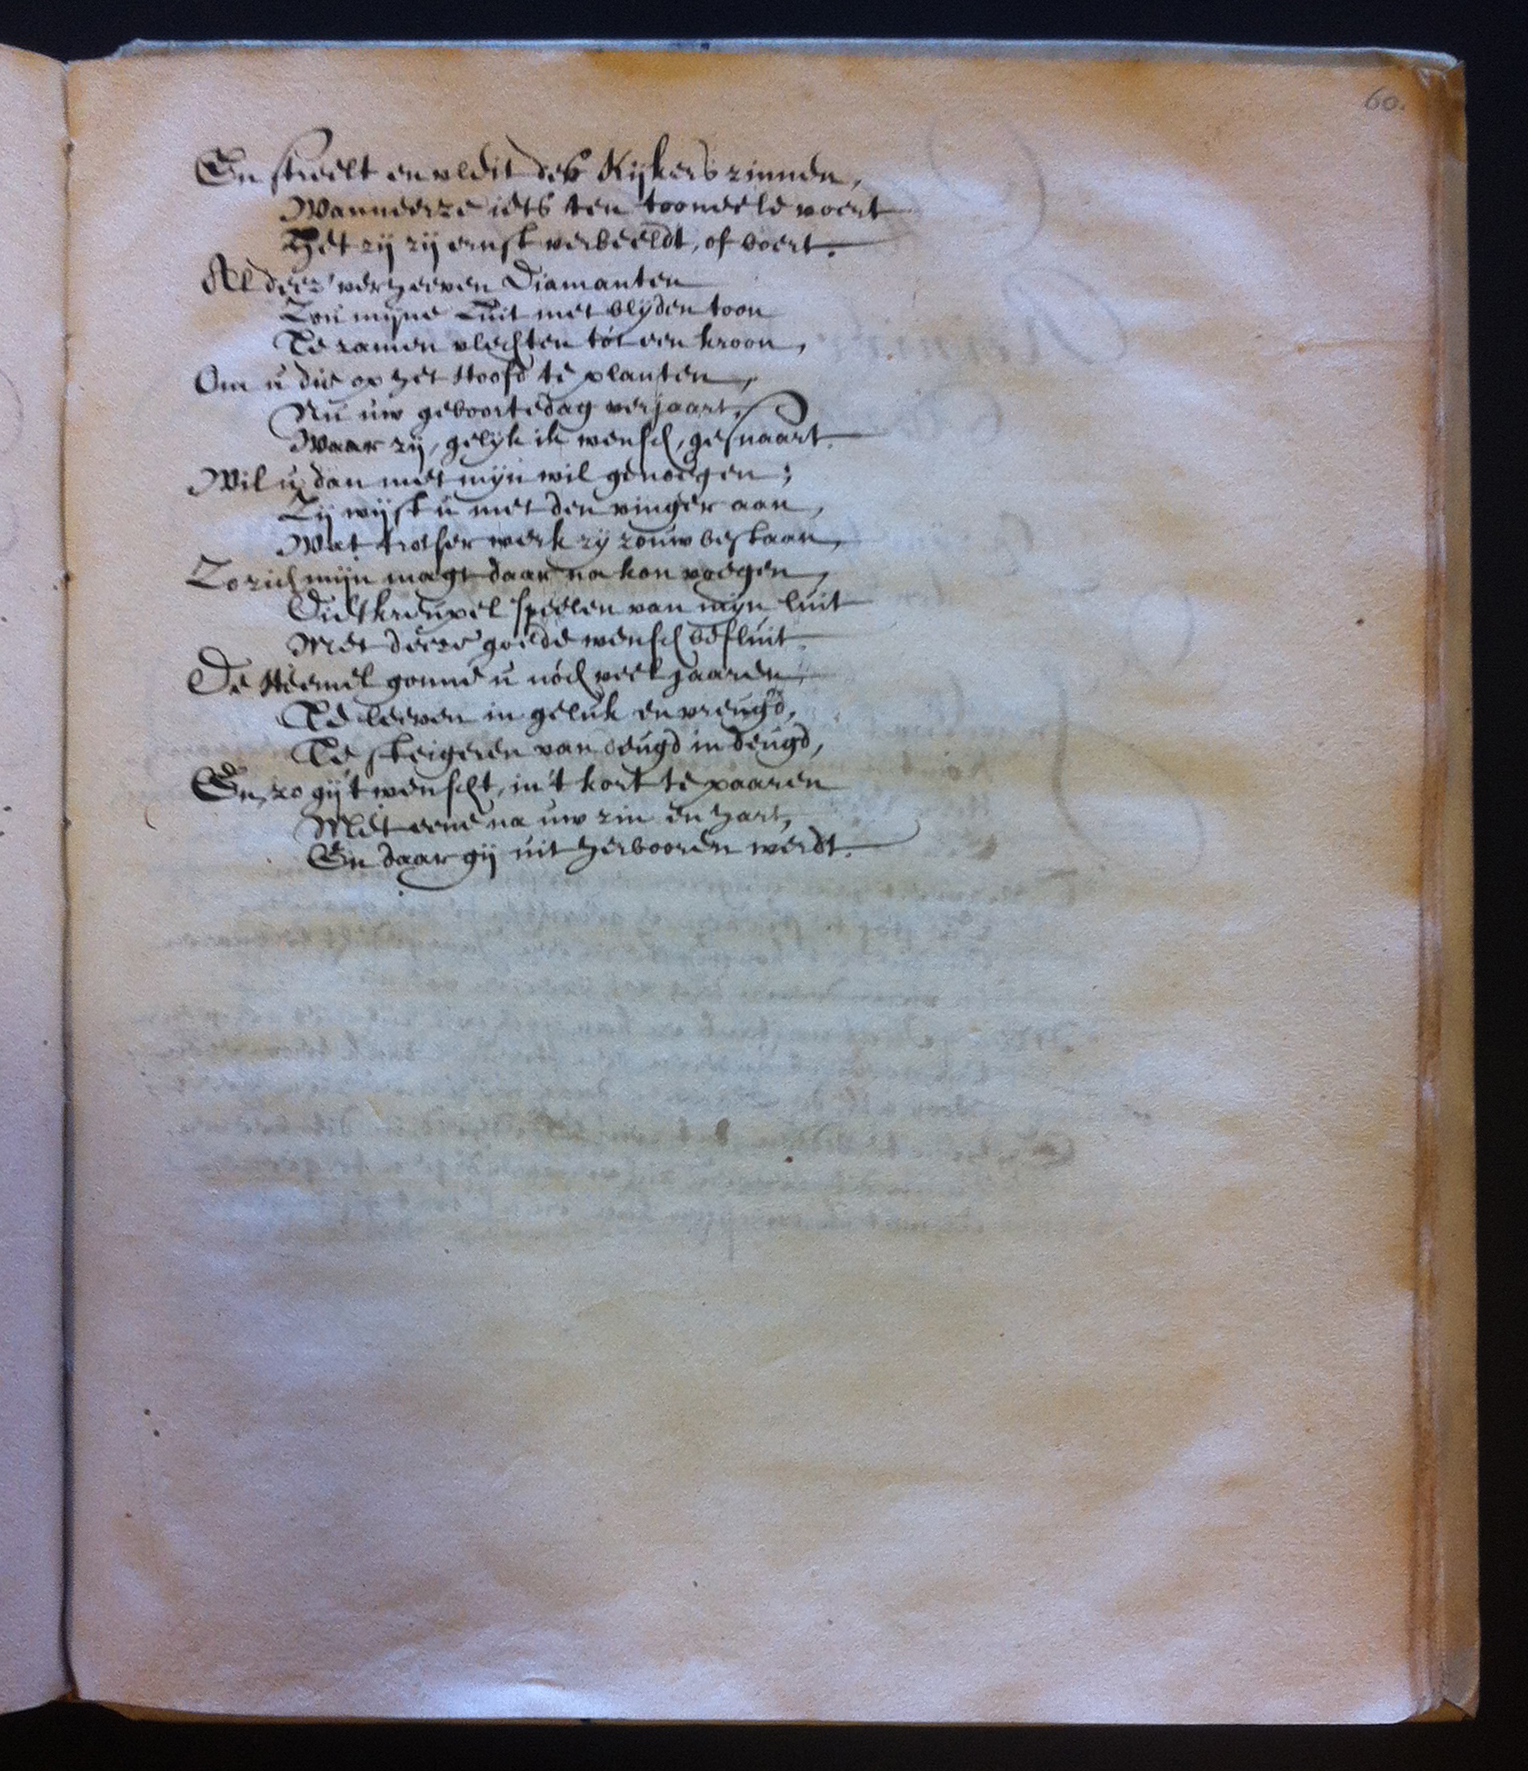 60.
En streelt en vleit des Kijkers zinnen,
Wanneerze iets ten tooneele voert
Het zij zij ernst verbeeldt, of boert.
Al deez' verheeven Diamanten
Zou mijne Luit met blijden toon
Te zamen vlechten tót een kroon,
Om u die op het Hoofd te planten,
Nu uw geboortedag verjaart,
Waar zij, gelijk ik wensch, gesnaart.
Wil u dan met mijn wil genoegen;
Zij wijst u met den vinger aan,
Wat trotser werk zij zouw bestaan,
Zo zich mijn magt daar na kon voegen,
Die 't kreupel speelen van mijn luit
Met deeze goede wensch besluit.
De Heemel gonne u nóch veel jaaren,
Te leeven in geluk en vreugd,
Te steigeren van deugd in deugd,
En, zo gij 't wenscht, in 't kort te paaren
Met eene na uw zin en hart,
En daar gij uit herbooren werdt.